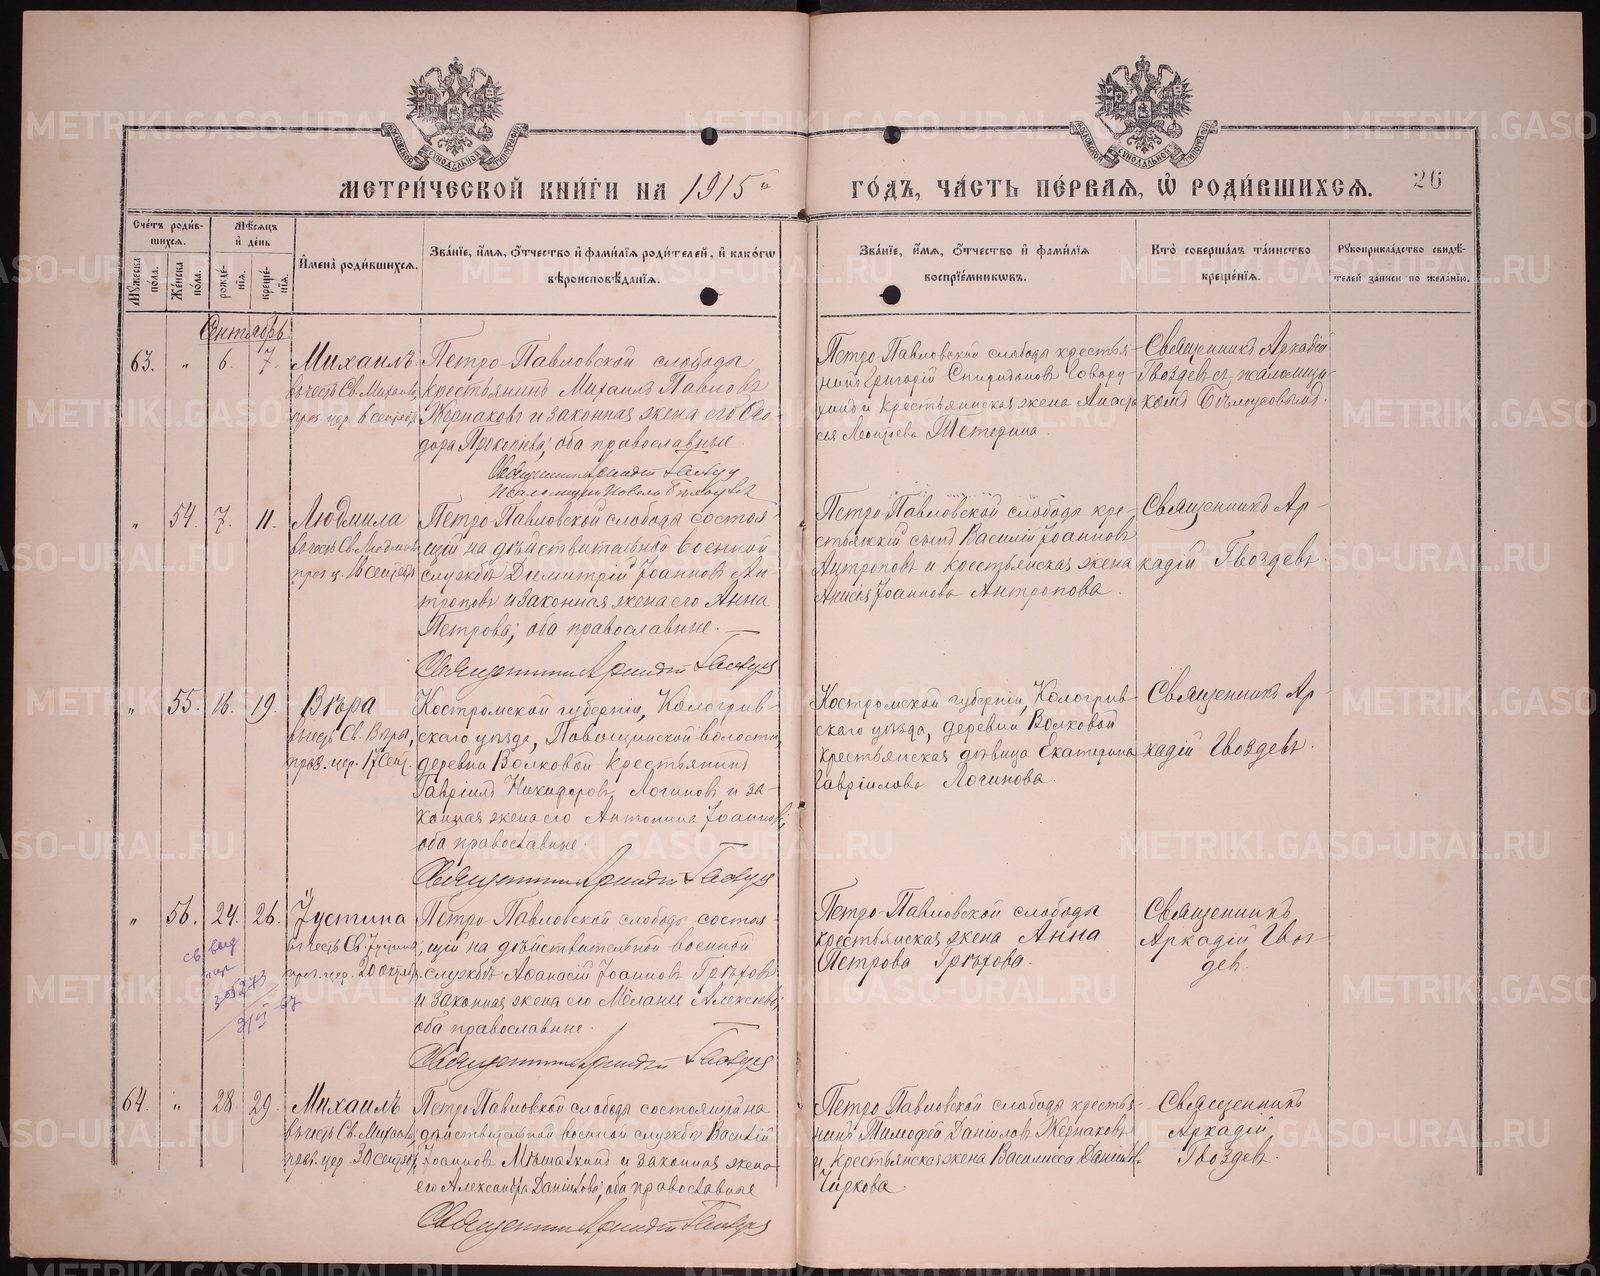 МЕТРИ́ЧЕСКОЙ КНИ́ГИ НА 1915й
ГО́ДЪ, ЧА́СТЬ ПЕ́РВАЯ, Ѽ РОДИ́ВШИХСЯ. 26
Сче́тъ роди́в-
шихся.
Мꙋ́жеска по́ла.
Же́нска по́ла.
Мѣ́сяцъ и де́нь
рожде́-
нія.
креще́-
нія.
И҆мена̀ роди́вшихся.
Зва́ніе, и҆́мя, ѻ҆́тчество и҆ фами́лія роди́телей, и҆ како́гѡ
вѣроисповѣ́данія.
Зва́ніе, и҆́мя, ѻ҆́тчество и҆ фами́лія
воспріе́мниковъ.
Кто̀ соверша́лъ та́инство
креще́нія.
Рукоприкла́дство свидѣ́-
телей за́писи по жела́нію.
Сентябрь
63. " 6. 7. Михаилъ
въ честь Св. Михаила,
праз. цер. 6 сентября
Петро-Павловской слободы
крестьянинъ Михаилъ Павловъ
Жернаковъ и законная жена его Ѳео-
дора Прокопьева; оба православные.
Священникъ Аркадій Гвоздевъ
Псаломщикъ
Петро-Павловской слободы кресть-
янинъ Григорій Спиридоновъ Говору-
хинъ и крестьянская жена Анаста-
сія Леонтьева Тетерина.
Священникъ Аркадій
Гвоздевъ съ псаломщи-
комъ Бѣлоусовымъ.
" 54. 7. 11. Людмила
въ честь Св. Людмилы
праз. ц. 16 сентября
Петро-Павловской слободы состоя-
щій на дѣйствительной военной
службѣ Димитрій Іоанновъ Ан-
троповъ и законная жена его Анна
Петрова; оба православные. —
Священникъ Аркадій Гвоздевъ
Петро-Павловской слободы кре-
стьянскій сынъ Василій Іоанновъ
Антроповъ и крестьянская жена
Анисія Іоаннова Антропова.
Священникъ Ар-
кадій Гвоздевъ.
" 55. 16. 19. Вѣра
въ честь Св. Вѣры,
праз. цер. 17 сент.
Костромской губерніи, Кологрив-
скаго уѣзда, волости,
деревни Волковой крестьянинъ
Гавріилъ Никифоровъ Логиновъ и за-
конная жена его Антонина Іоаннова;
оба православные.
Священникъ Аркадій Гвоздевъ
Костромской губерніи, Кологрив-
скаго уѣзда, деревни Волковой
крестьянская дѣвица Екатерина
Гавріилова Логинова.
Священникъ Ар-
кадій Гвоздевъ.
" 56. 24. 26. Іустина
въ честь Св. Іустины
праз. цер. 2 октября
Петро-Павловской слободы состоя-
щій на дѣйствительной военной
службѣ Аѳанасій Іоанновъ Грѣховъ
и законная жена его Меланія Алексѣева,
оба православные.
Священникъ Аркадій Гвоздевъ
Петро-Павловской слободы
крестьянская жена Анна
Петрова Грѣхова.
Священникъ
Аркадій Гвоз-
девъ.
64. " 28 29. Михаилъ
въ честь Св. Михаила,
праз. цер. 30 сентября
Петро-Павловской слободы состоящій на
дѣйствительной военной службѣ Василій
Іоанновъ и законная жена
его Александра Даніилова; оба православные
Священникъ Аркадій Гвоздевъ
Петро-Павловской слободы кресть-
янинъ Тимофей Даніиловъ Жернаковъ
и крестьянская жена Василисса Даніилова
Чиркова.
Священникъ
Аркадій
Гвоздевъ.
METRIKI.GASO-URAL.RU